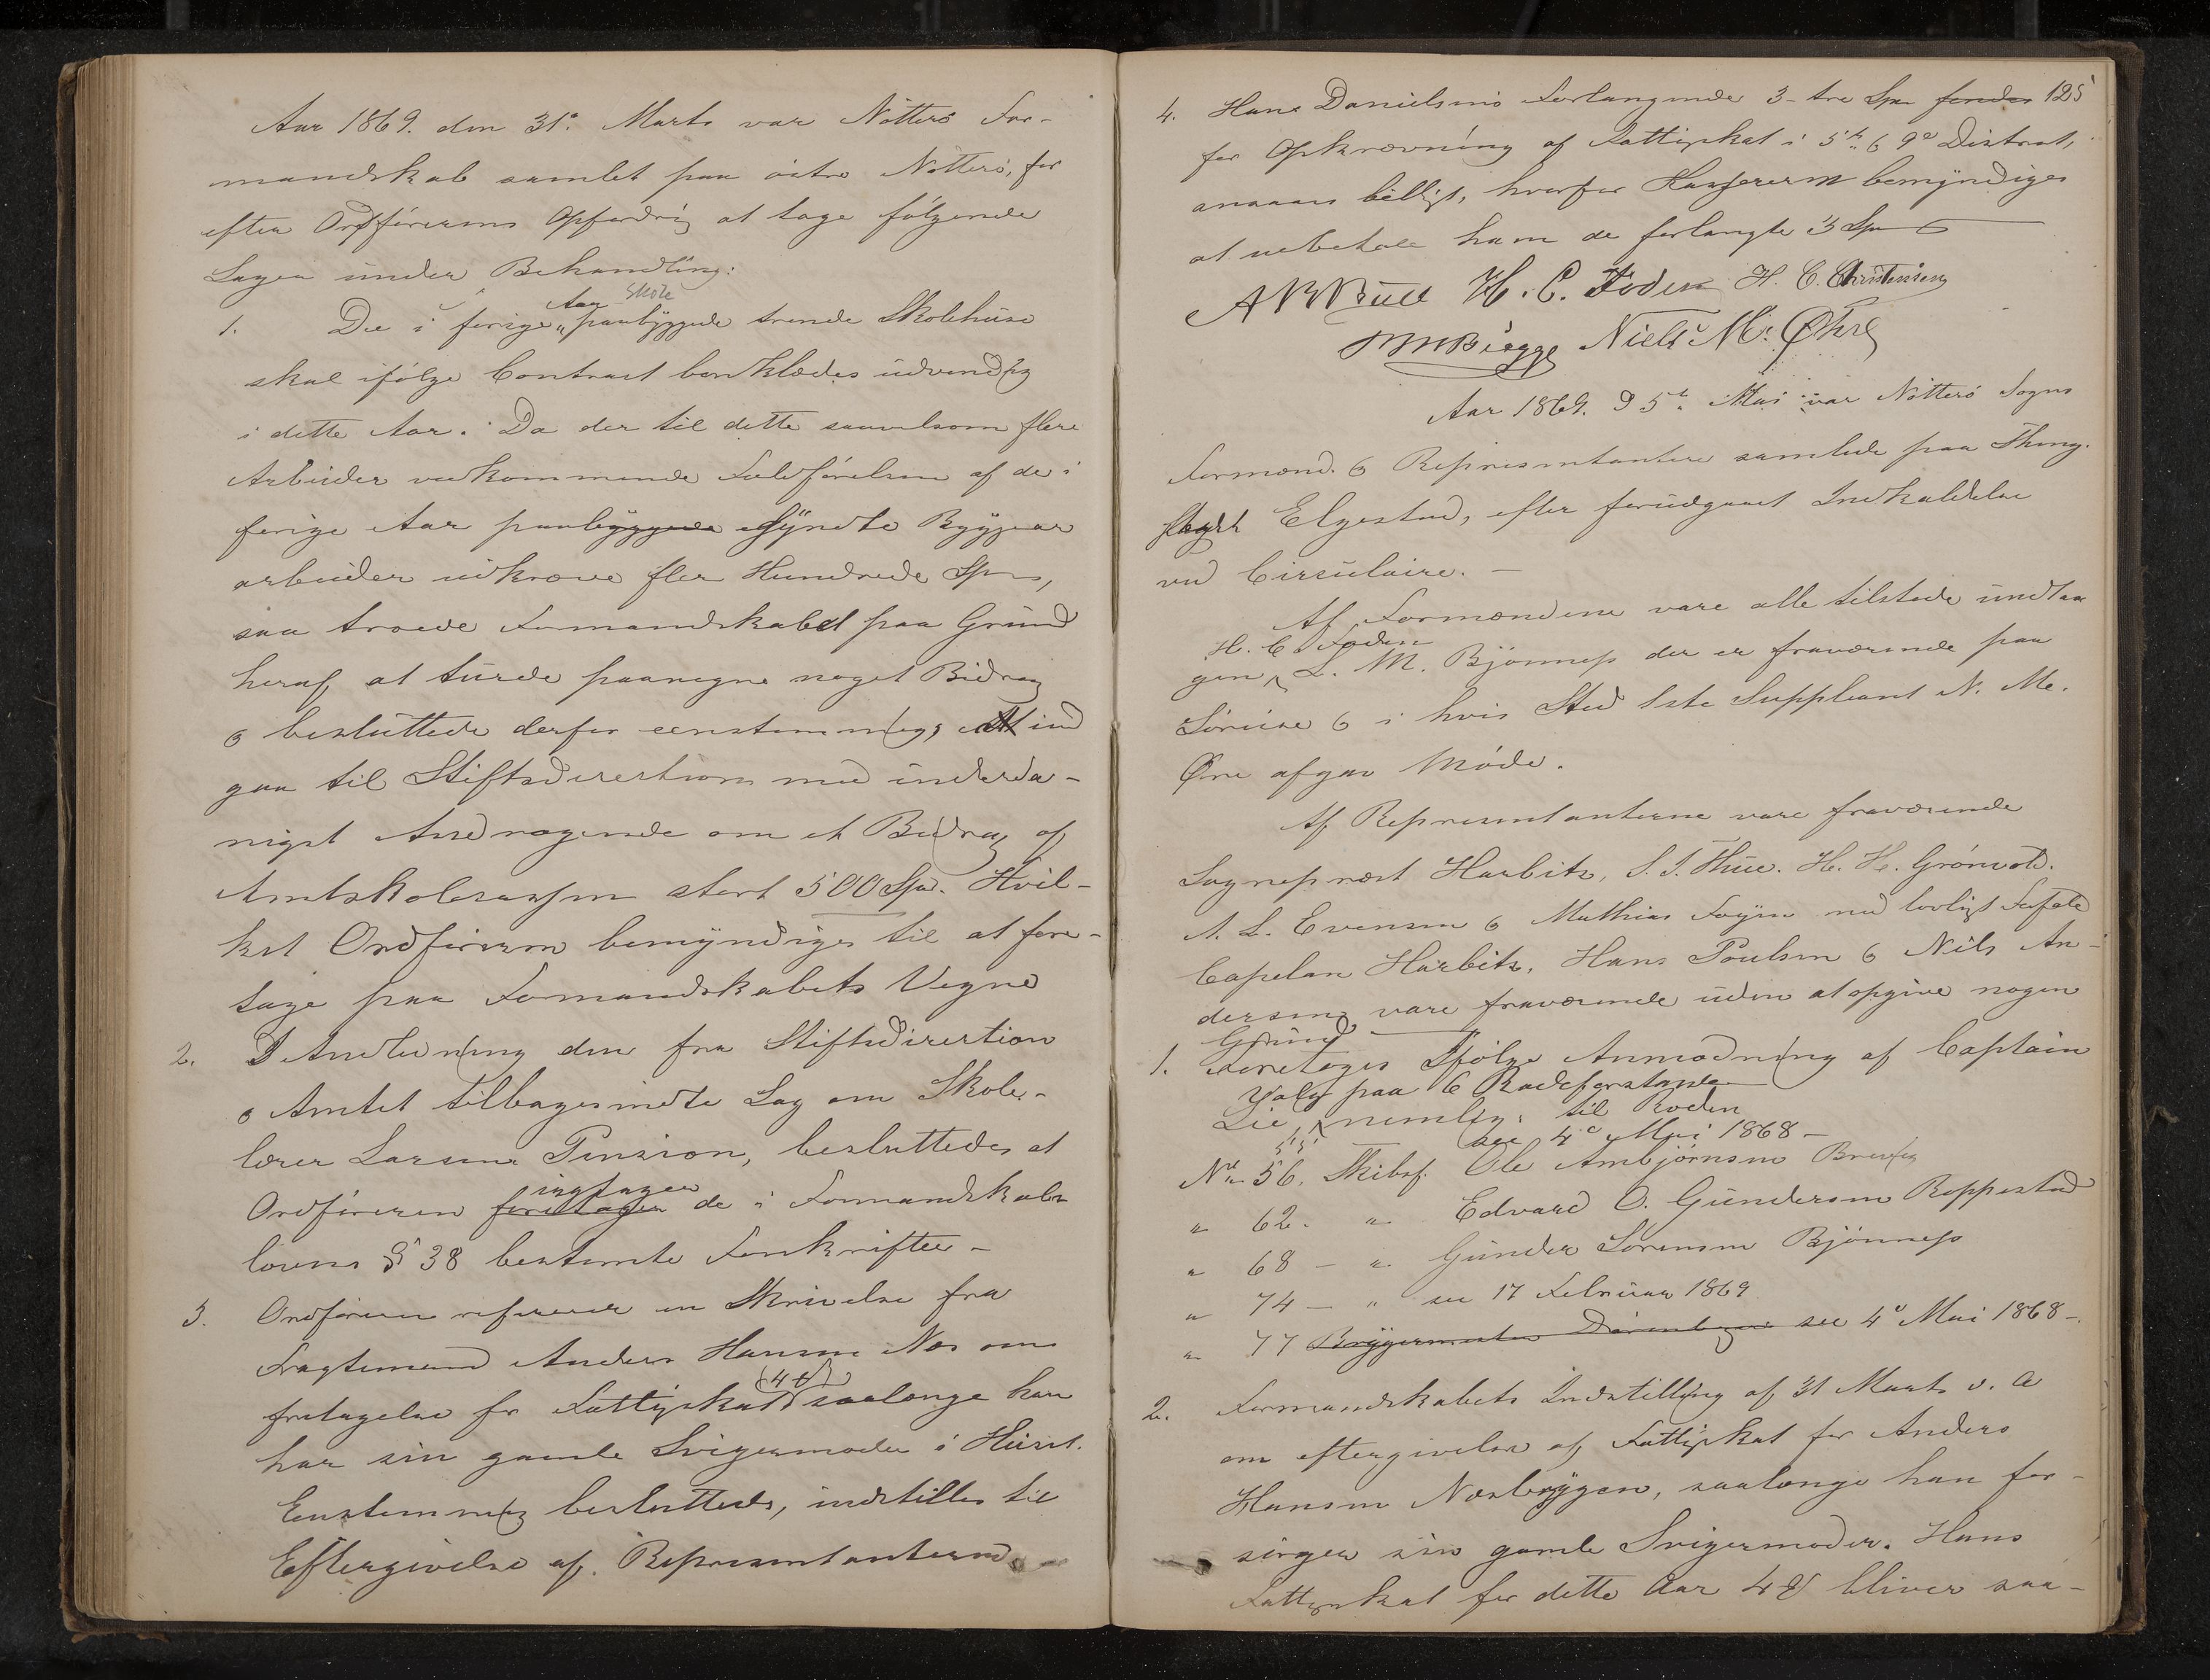 Aar 1869. den 31te Marts var Nötterö For-
mandskab samlet paa östre Nötterö, for
efter Ordförerens Opfordrig at tage fölgende
Sager under Behandling:
Aar Skole
1. De i forige paabyggede trende Skolehuse
skal ifölge Contract bordklædes udvendig
i dette Aar. Da der til dette saavelsom flere
Arbeider vedkommende Fuldförelsen af de i
forige Aar paabyggede Byggear
arbeider udkræve flere Hundrede Spd,
saa troede Formandskabet paa Grund
heraf, at turde paaregne noget Bidrag
o besluttede derfor eenstemmig, at ind
gaa til Stiftsdirectionen med underda-
nigst Andragende om et Bidrag af
Amtskolecassen stort 500 Spd. Hvil-
ket Ordföreren bemyndiges til at fore-
tage paa Formandskabets Vegne
2. I Anledning den fra Stiftsdirection
o Amtet tilbagesendte Sag om Skole-
lærer Larsens Pension, besluttedes at
iagtager
Ordföreren foretager de i Formandskabs
lovens § 38 bestemte Forskrifter -
3. Ordföreren refererer en Skrivelse fra
Fragtemand Anders Hansen Nes om
(4 )
fritagelse for Fattigskat saalænge han
har sin gamle Svigermoder i Huset.
Eenstemmig besluttedes, indstilles til
Eftergivelse af Repræsentanterne
125
4. Hans Danielsens Forlangende 3- tre Spd
for Opkrævning af Fattigskat i 5te & 9de District,
ansaaes billigt, hvorfor Kassereren bemyndiges
at udbetale ham de forlangte 3 Spd
A B Bull H. C. Foden H. C. Christensen
Bugge Niels M. Öhre
Aar 1869. D 5te Mai var Nötterö Sogns
Formænd & Repræsentantere samlede paa Thing-
Elgestad, efter forudgaaet Indkaldelse
ved Circulaire. -
Af Formændene vare alle tilstede undta
H. C. Foden
gen L. M. Bjönnes der er fraværende paa
Söreise & i hvis Sted 1ste Suppleant N. M.
Öre afgav Möde.
Af Repræsentanterne vare fraværende
Sogneprest Harbitz, S. T. Hue. H. H. Grönvold.
A. L. Evensen & Mathias Foyen med lovligt Forfald
Capelan Harbitz, Hans Poulsen & Nils An-
dersen, vare fraværende uden at opgive nogen
Grund
1. Foretoges Ifölge Anmodning af Captain
Valg paa 6 Rodeforstander
Lie, nemlig. til Roden
55 see 4de Mai 1868 -
No 56. Skibsf. Ole Ambjörnsen Brevig
" 62. " Edvard O. Gundersen Roppestad
" 68 - " Gunder Sörensen Bjönnes
" 74 - " see 17 Februar 1869
" 77 Bryggermester see 4de Mai 1868 -
2. Formandskabets Indstilling af 31 Marts d. A
om eftergivelse af Fattigskat for Anders
Hansen Nesbryggen, saalænge han for-
sörger sin gamle Svigermoder. Hans
Fattigskat for dette Aar 4 bliver saa-